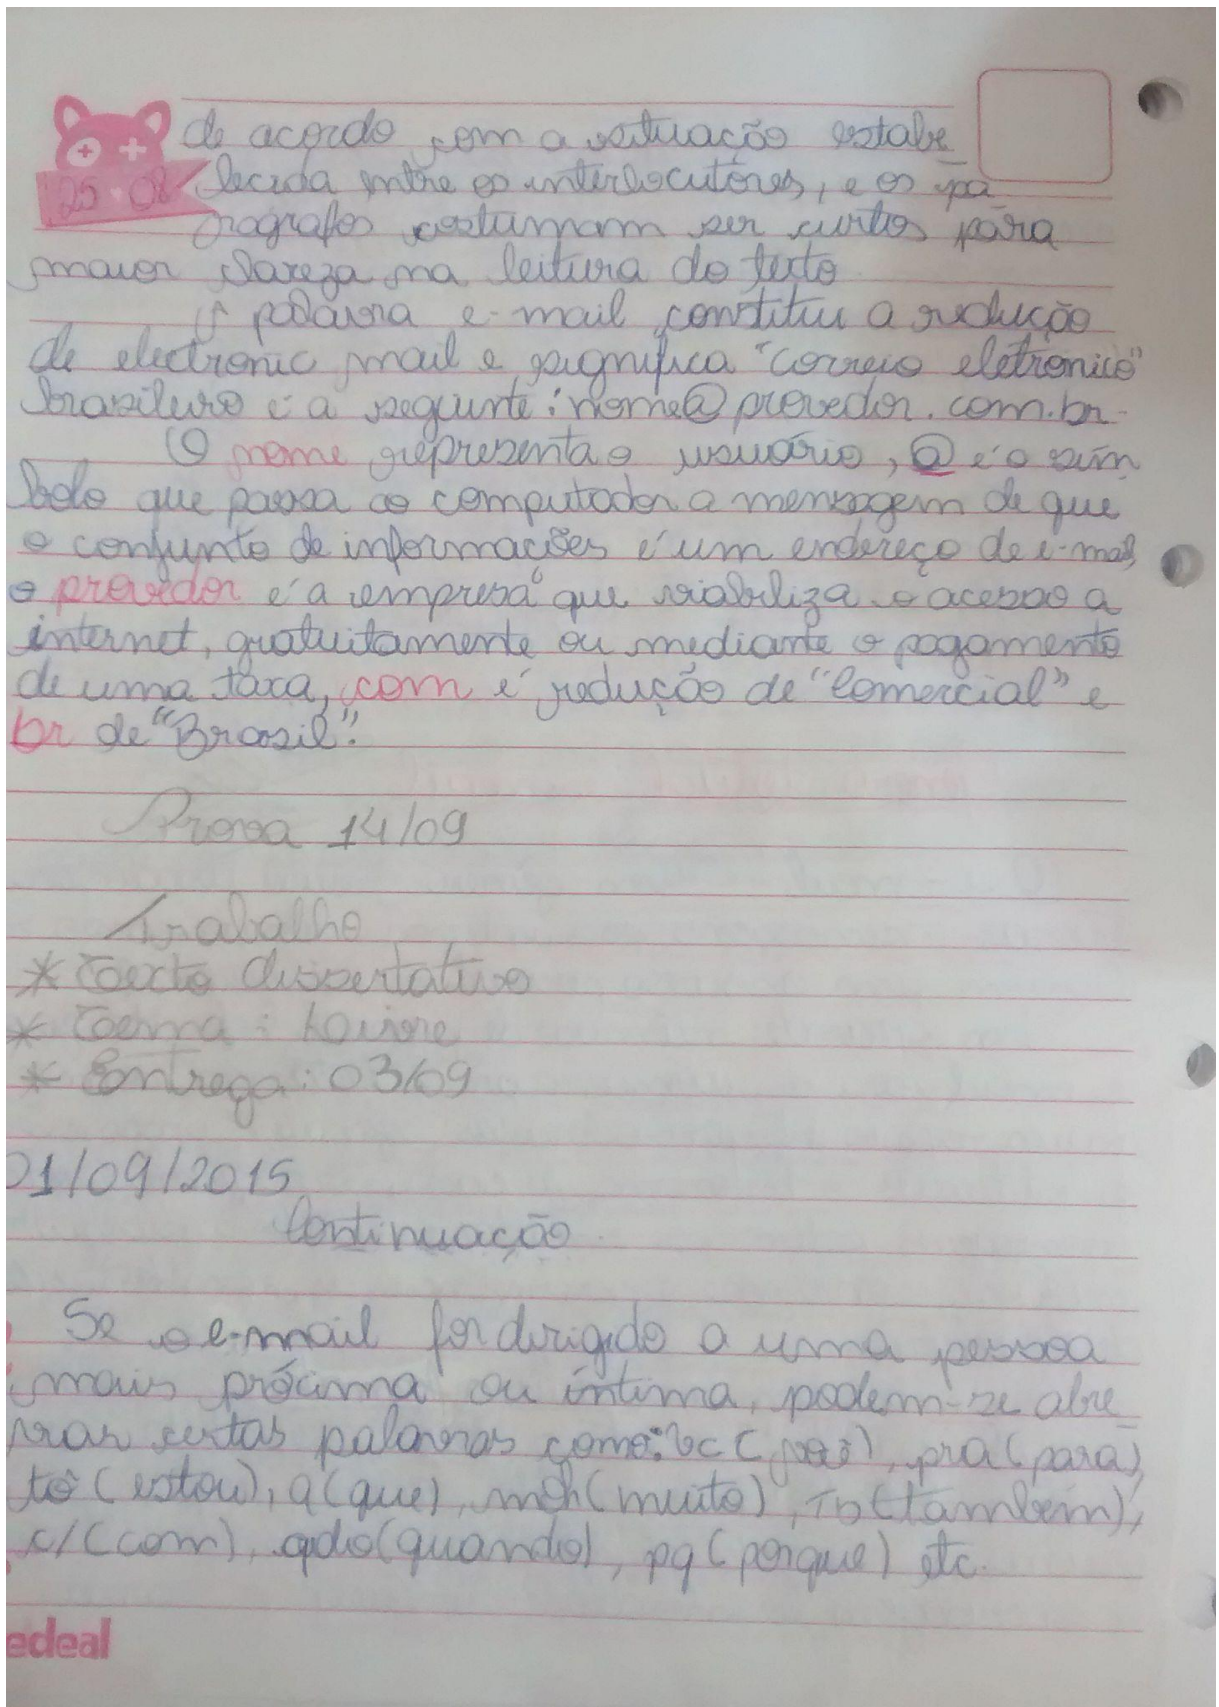 de acordo com a situação estabe
25 08
lecida entre os interlocutores, e os pa
ragrafos costumam ser curtos para
maior clareza na leitura do texto
A palavra e-mail constitui a redução
de electronic mail e significa "correio eletronico"
brasileiro é a seguinte: nome@provedor.com.br.
O nome representa o usuário, @ é o sím
bolo que passa ao computador a mensagem de que
o conjunto de informações é um endereço de e-mail,
o provedor é a empresa que viabiliza o acesso a
internet, gratuitamente ou mediante o pagamento
de uma taxa, com é redução de "Comercial" e
br de "Brasil".
Prova 14/09
Trabalho
* Texto dissertativo
* Tema: Livre
* Entrega: 03/09
01/09/2015
Continuação
Se o e-mail for dirigido a uma pessoa
mais próxima ou íntima, podem-se abre
viar certas palavras como: vc ( ), pra (para),
tô (estou), q (que), mth (muito), Tb (também),
c/ (com), qdo (quando), pq (porque) etc.
edeal